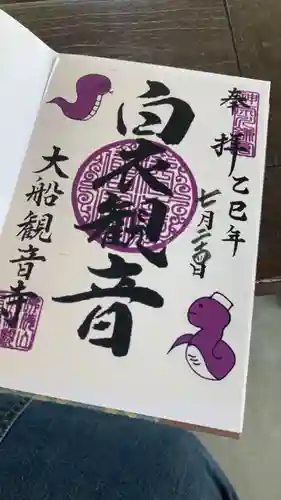 奉拝
乙巳年
七月二四日
白衣観音
大船観音寺